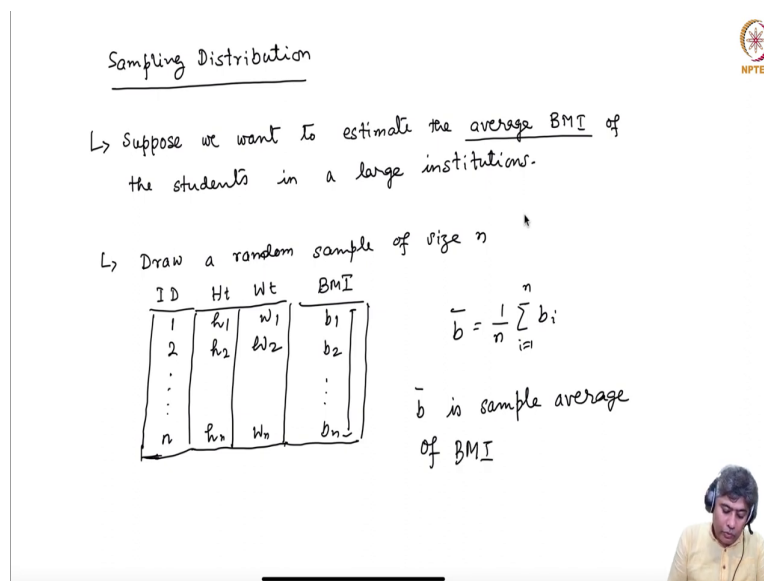 Sampling Distribution
NPTE
↳ Suppose we want to estimate the average BMI of
the students in a large institutions.
↳ Draw a random sample of size n
ID Ht Wt BMI
1 h₁ w₁ b₁
2 h₂ w₂ b₂
n hₙ wₙ bₙ
b̄ = 1/n ∑ᵢ₌₁ⁿ bᵢ
b̄ is sample average
of BMI